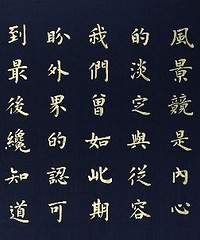 風景競是內心
的淡定與從容
我們曾如此期
盼外界的認可
到最後纔知道